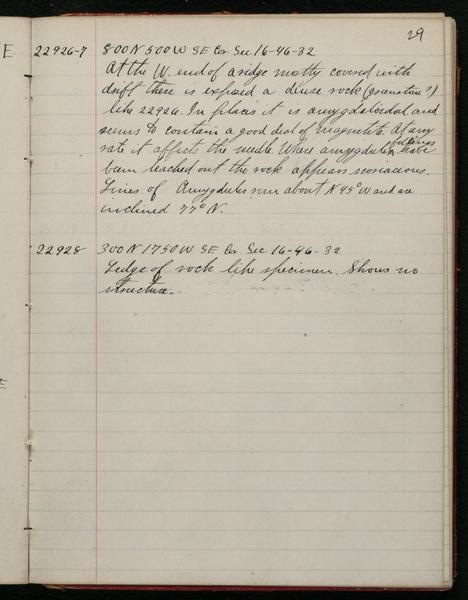 29
22926-7 800 N 500 W SE Cor. Sec. 16-46-32
At the W. end of a ridge mostly covered with
drift there is exposed a dense rock (greenstone?)
like 22926. In places it is amygdaloidal and
seems to contain a good deal of magnetite. At any
rate it affects the needle. Where amygdule fillings have
been leached out the rock appears scoriacious.
Lines of Amygdules run about N 45° W and are
inclined 77° N.
22928 300 N 1750 W SE Cor. Sec. 16-46-32
Ledge of rock like specimen. Shows no
structure.